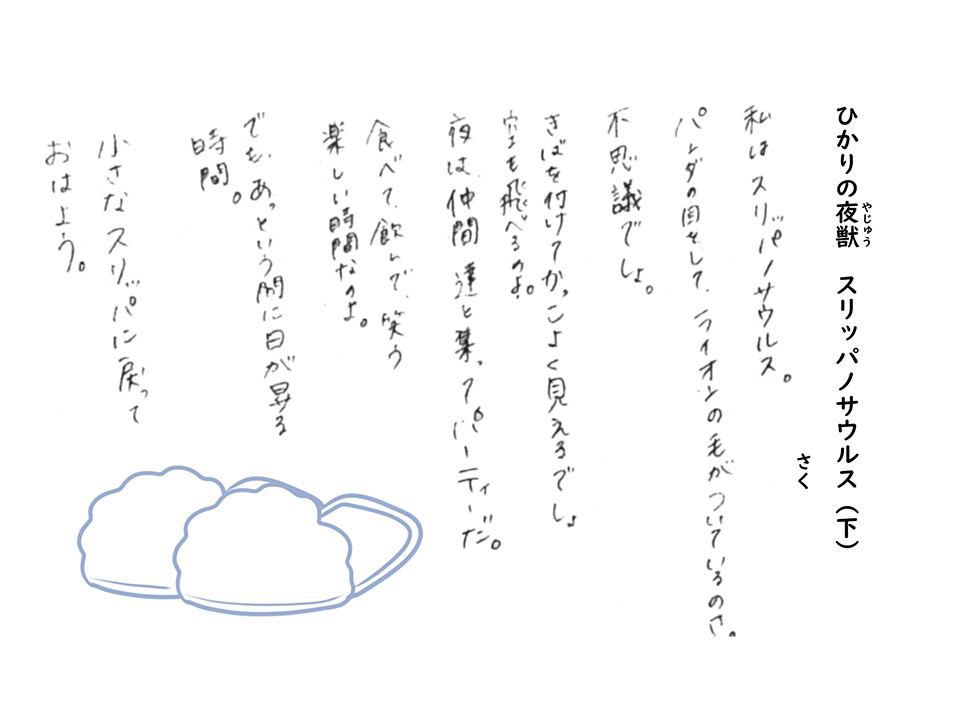 ひかりの夜獣　スリッパノサウルス（下）
やじゅう
さく
私はスリッパノサウルス。
パンダの目をして、ライオンの毛がついているのさ。
不思議でしょ。
きばを付けてかっこよく見えるでしょ
空も飛べるのよ。
夜は、仲間達と集ってパーティーだ。
食べて、飲んで、笑う
楽しい時間なのよ。
でも、あっという間に日が昇る
時間。
小さなスリッパに戻って
おはよう。